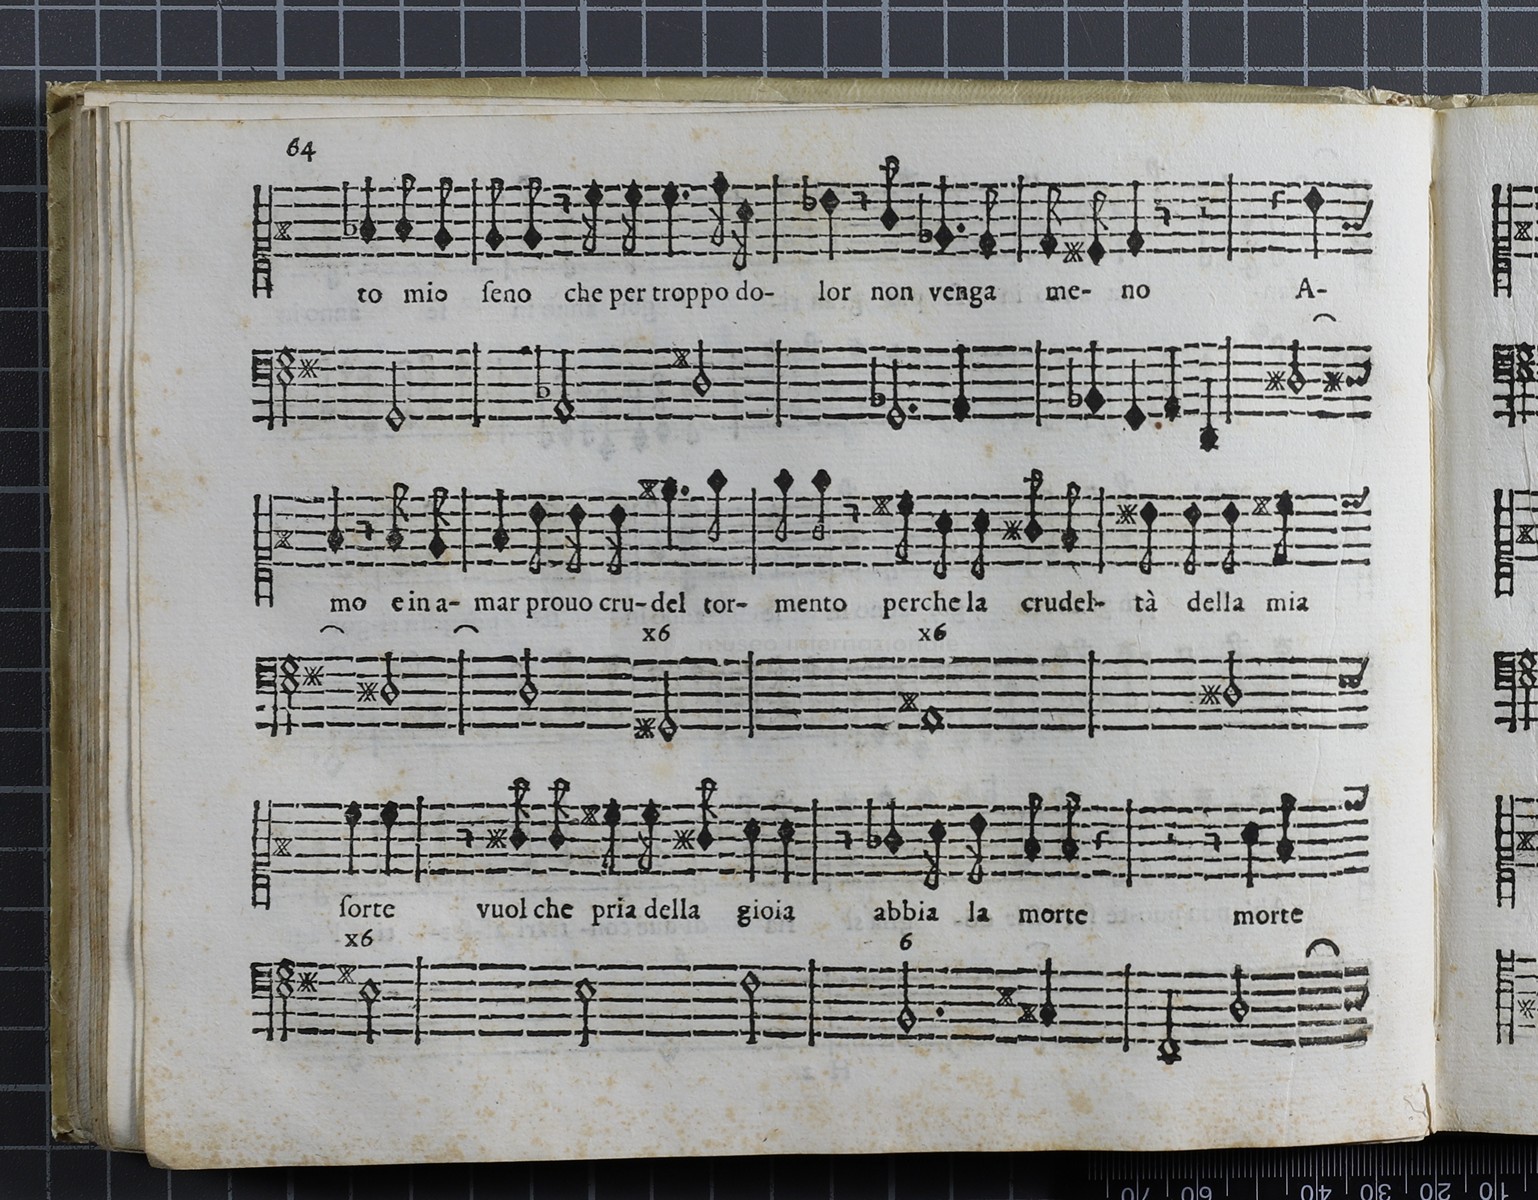 64
to mio ſeno che per troppo do- lor non venga me- no A-
mo e in a- mar prouo cru- del tor- mento perche la crudel- tà della mia
x6 x6
ſorte vuol che pria della gioia abbia la morte morte
x6 6
70 60 40 30 20 10